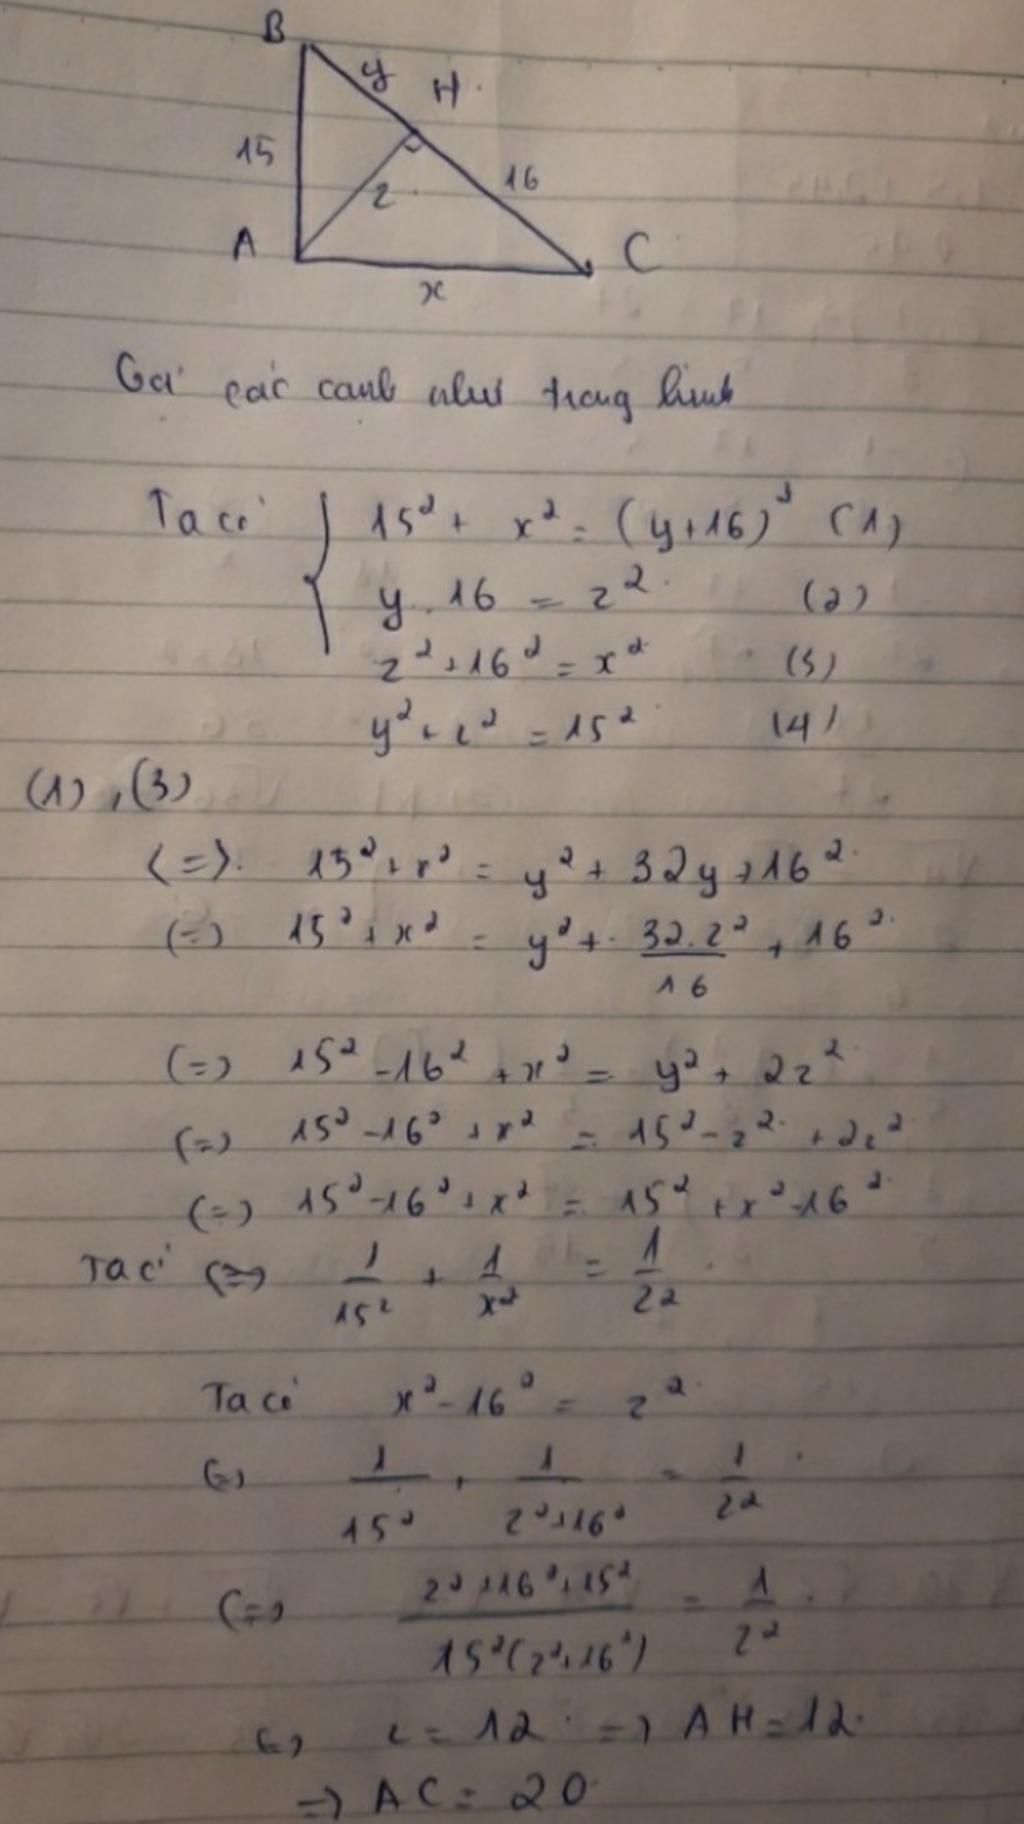 B
y H
15
16
z
A
C
x
Gọi các cạnh như trong hình
Ta có { 15² + x² = (y+16)² (1)
y . 16 = z² (2)
z² + 16² = x² (3)
y² + z² = 15² (4)
(1), (3)
<=> 15² + x² = y² + 32y + 16²
(=) 15² + x² = y² + 32.z²/16 + 16²
(=) 15² - 16² + x² = y² + 2z²
(=) 15² - 16² + x² = 15² - z² + 2z²
(=) 15² - 16² + x² = 15² + x² - 16²
Ta có (=) 1/15² + 1/x² = 1/z²
Ta có x² - 16² = z²
(=) 1/15² + 1/(z²+16²) = 1/z²
(=) (z²+16²+15²)/(15²(z²+16²)) = 1/z²
(=) z = 12 => AH = 12
=> AC = 20